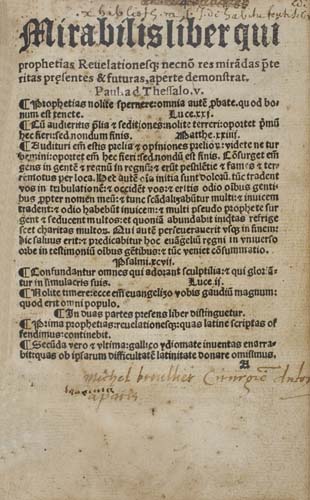 Mirabilis liber qui
prophetias Reuelationesq; necnõ res mirãdas p̃te
ritas presentes & futuras, aperte demonstrat.
Paul. ad Thessalo. v.
¶ Prophetias nolite spernere: omnia autẽ ꝓbate. quod bo
num est tenete. Luce. xxj.
¶ Cũ audieritis p̃lia & seditiones: nolite terreri: oportet p̃mũ
hec fieri: sed nondum finis. Matthe. xxiiij.
¶ Audituri em̃ estis prelia & opiniones preliorũ: videte ne tur
bemini: oportet em̃ hec fieri: sed nondũ est finis. Cõsurget em̃
gens in gentẽ & regnũ in regnũ: & erũt pestilẽtie & fames & ter
remotus per loca. Hec autẽ oĩa initia sunt dolorũ. tũc tradent
vos in tribulationẽ: & occidẽt vos: & eritis odio oĩbus genti
bus ꝓpter nomẽn meũ: & tunc scãdalizabũtur multi: & inuicem
tradent: & odio habebũt inuicem: & multi pseudo prophete sur
gent & seducent multos: et quoniã abundabit iniq̃tas refrige
scet charitas multorũ. Qui autẽ perseuerauerit vsq; in finem:
hic saluus erit: et predicabitur hoc euãgeliũ regni in vniuerso
orbe in testimoniũ oĩbus gẽtibus: et tũc veniet cõsummatio.
Psalmi. xcvij.
¶ Confundantur omnes qui adorant sculptilia: et qui gloriã
tur in simulacris suis. Luce. ij.
¶ Nolite timere: ecce em̃ euangelizo vobis gaudiũ magnum:
quod erit omni populo.
¶ In duas partes presens liber distinguetur.
¶ Prima prophetias: reuelationesq;: quas latine scriptas of
fendimus: continebit.
¶ Secũda vero & vltima: gallico ydiomate inuentas enarra
bit: quas ob ipsarum difficultatẽ latinitate donare omisimus.
A
michel
a paris